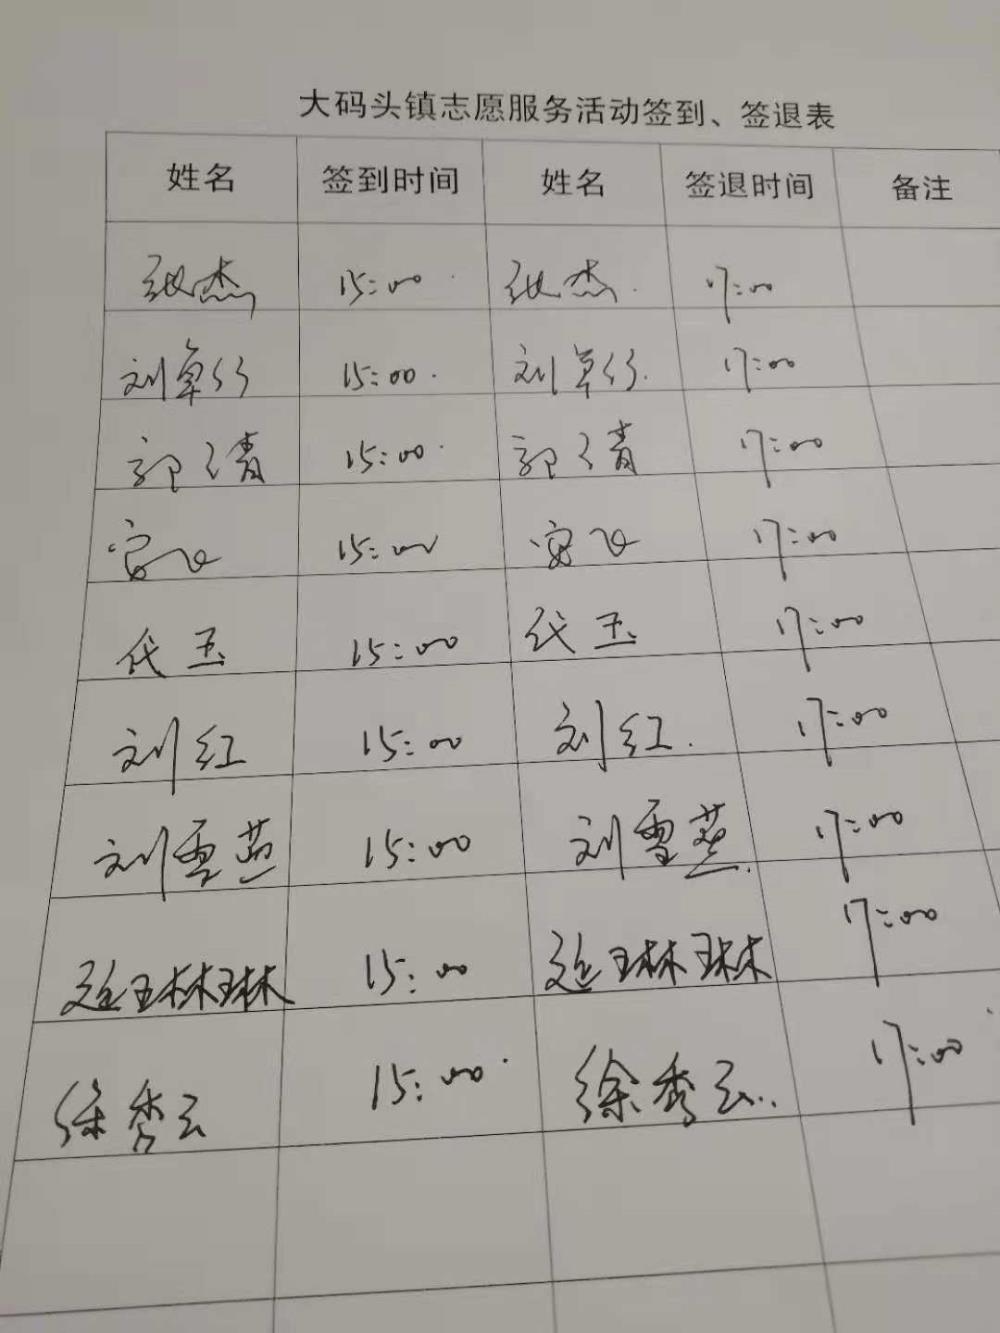 大码头镇志愿服务活动签到、签退表
姓名 签到时间 姓名 签退时间 备注
张杰 15:00 张杰 17:00
刘 15:00 刘 17:00
郭清 15:00 郭清 17:00
安飞 15:00 安飞 17:00
代玉 15:00 代玉 17:00
刘红 15:00 刘红 17:00
刘雪燕 15:00 刘雪燕 17:00
延琳琳 15:00 延琳琳 17:00
徐秀云 15:00 徐秀云 17:00